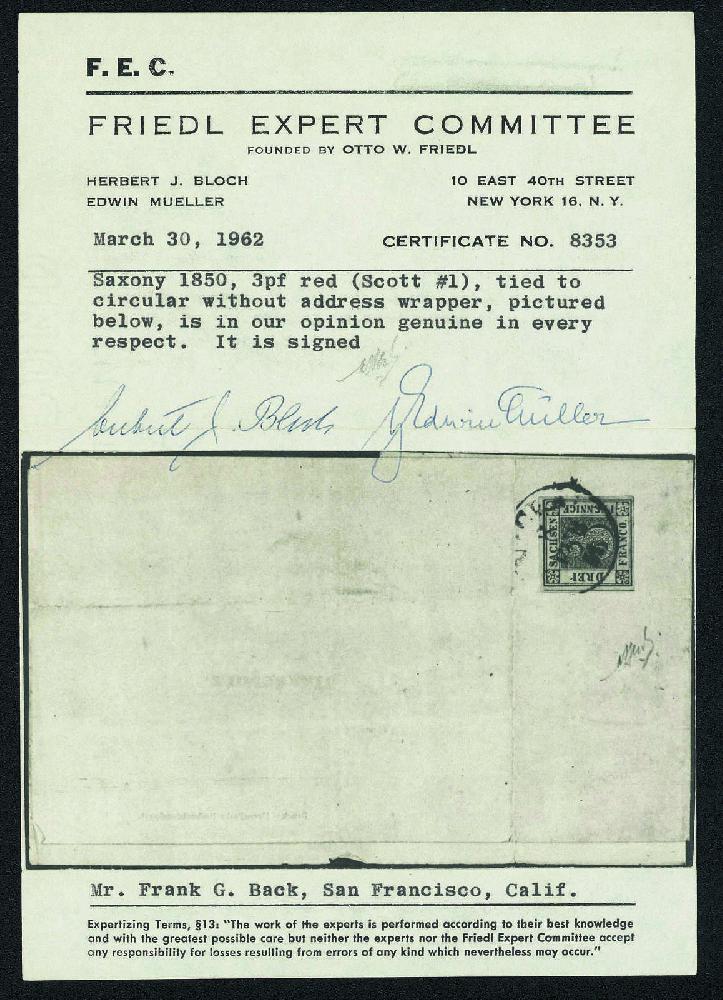 F. E. C.
FRIEDL EXPERT COMMITTEE
FOUNDED BY OTTO W. FRIEDL
HERBERT J. BLOCH
EDWIN MUELLER
10 EAST 40TH STREET
NEW YORK 16, N. Y.
March 30, 1962
CERTIFICATE NO. 8353
Saxony 1850, 3pf red (Scott #1), tied to
circular without address wrapper, pictured
below, is in our opinion genuine in every
respect. It is signed
Herbert J. Bloch Edwin Müller
SACHSEN
PFENNIGE
FRANCO.
DREI
3
Mr. Frank G. Back, San Francisco, Calif.
Expertizing Terms, §13: "The work of the experts is performed according to their best knowledge
and with the greatest possible care but neither the experts nor the Friedl Expert Committee accept
any responsibility for losses resulting from errors of any kind which nevertheless may occur."